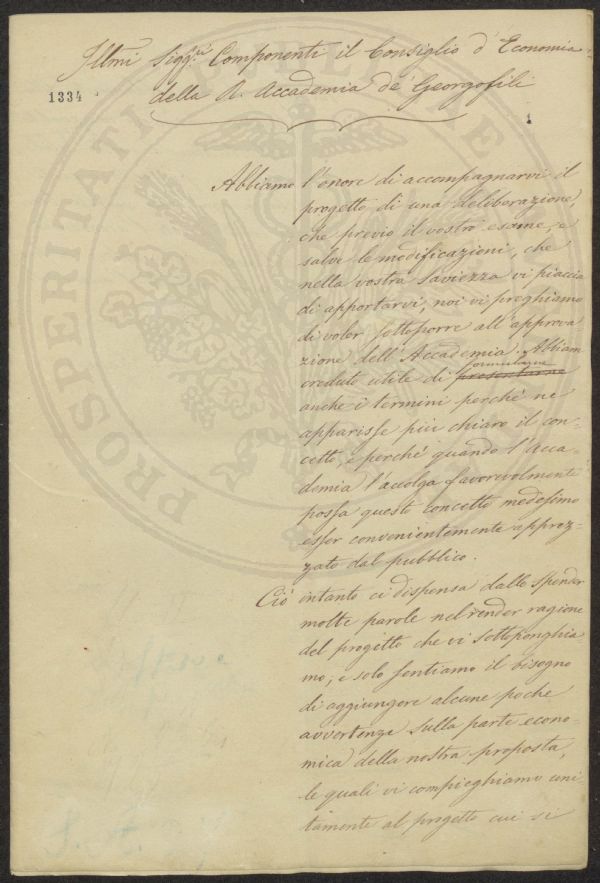 Illmi Sigg.ri Componenti il Consiglio d'Economia
della R. Accademia de' Georgofili
1334
1
Abbiamo l'onore di accompagnarvi il
progetto di una deliberazione,
che previo il vostro esame, e
salve le modificazioni, che
nella vostra saviezza vi piaccia
di apportarvi, noi vi preghiamo
di voler sottoporre all'approva-
zione dell'Accademia. Abbiam
formularne
creduto utile di presentarne
anche i termini perché ne
apparisse più chiaro il con-
cetto, e perché quando l'Acca-
demia l'accolga favorevolmente
possa questo concetto medesimo
esser convenientemente apprez-
zato dal pubblico.
Ciò intanto ci dispensa dallo spender
molte parole nel render ragione
del progetto che vi sottoponghia-
mo; e solo sentiamo il bisogno
di aggiungere alcune poche
avvertenze sulla parte econo-
mica della nostra proposta,
le quali vi compieghiamo uni-
tamente al progetto cui si
PROSPERITATI